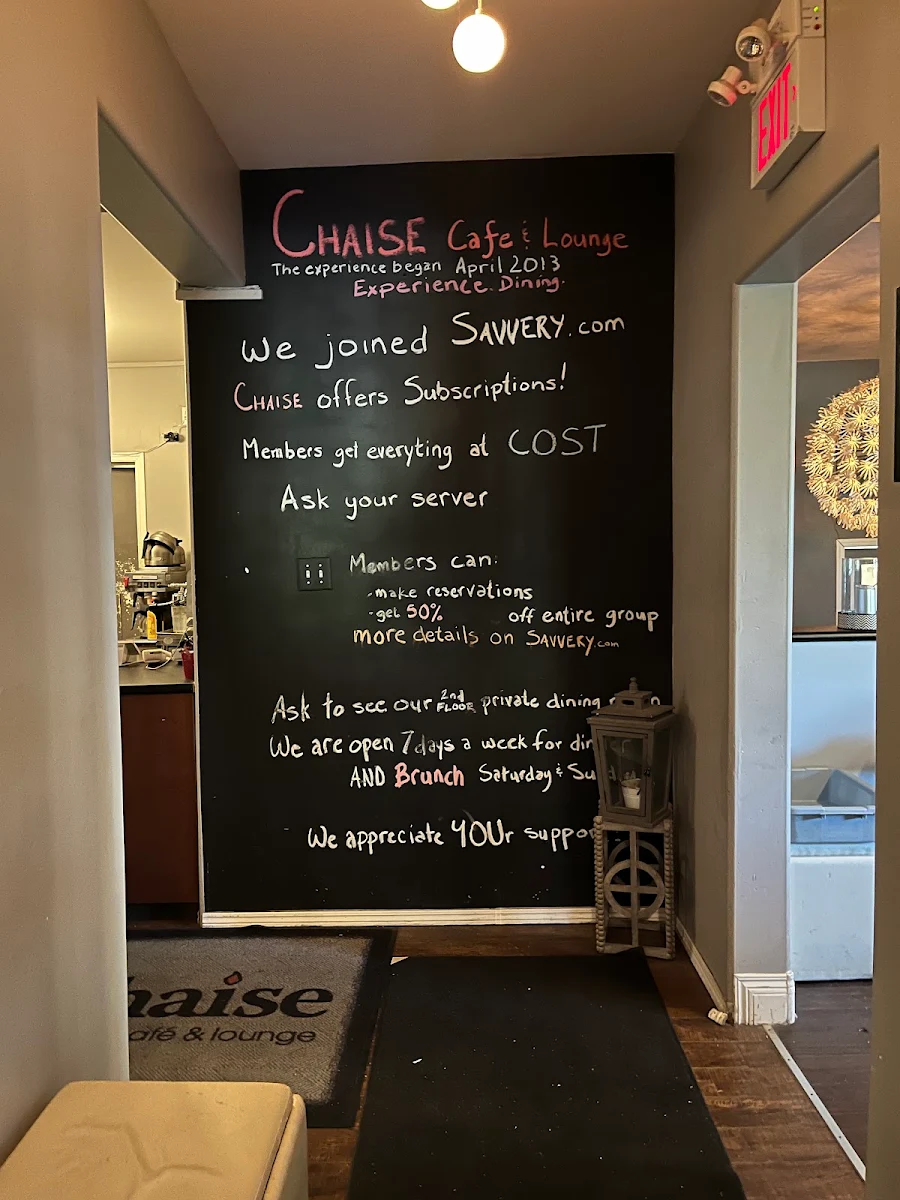 EXIT
CHAISE Cafe & Lounge
The experience began April 2013
Experience Dining.
We joined SAVVERY.com
CHAISE offers Subscriptions!
Members get everyting at COST
Ask your server
Members can:
-make reservations
-get 50% off entire group
more details on SAVVERY.com
Ask to see our 2nd FLOOR private dining
We are open 7days a week for
AND Brunch Saturday &
We appreciate YOUr
haise
afé & lounge